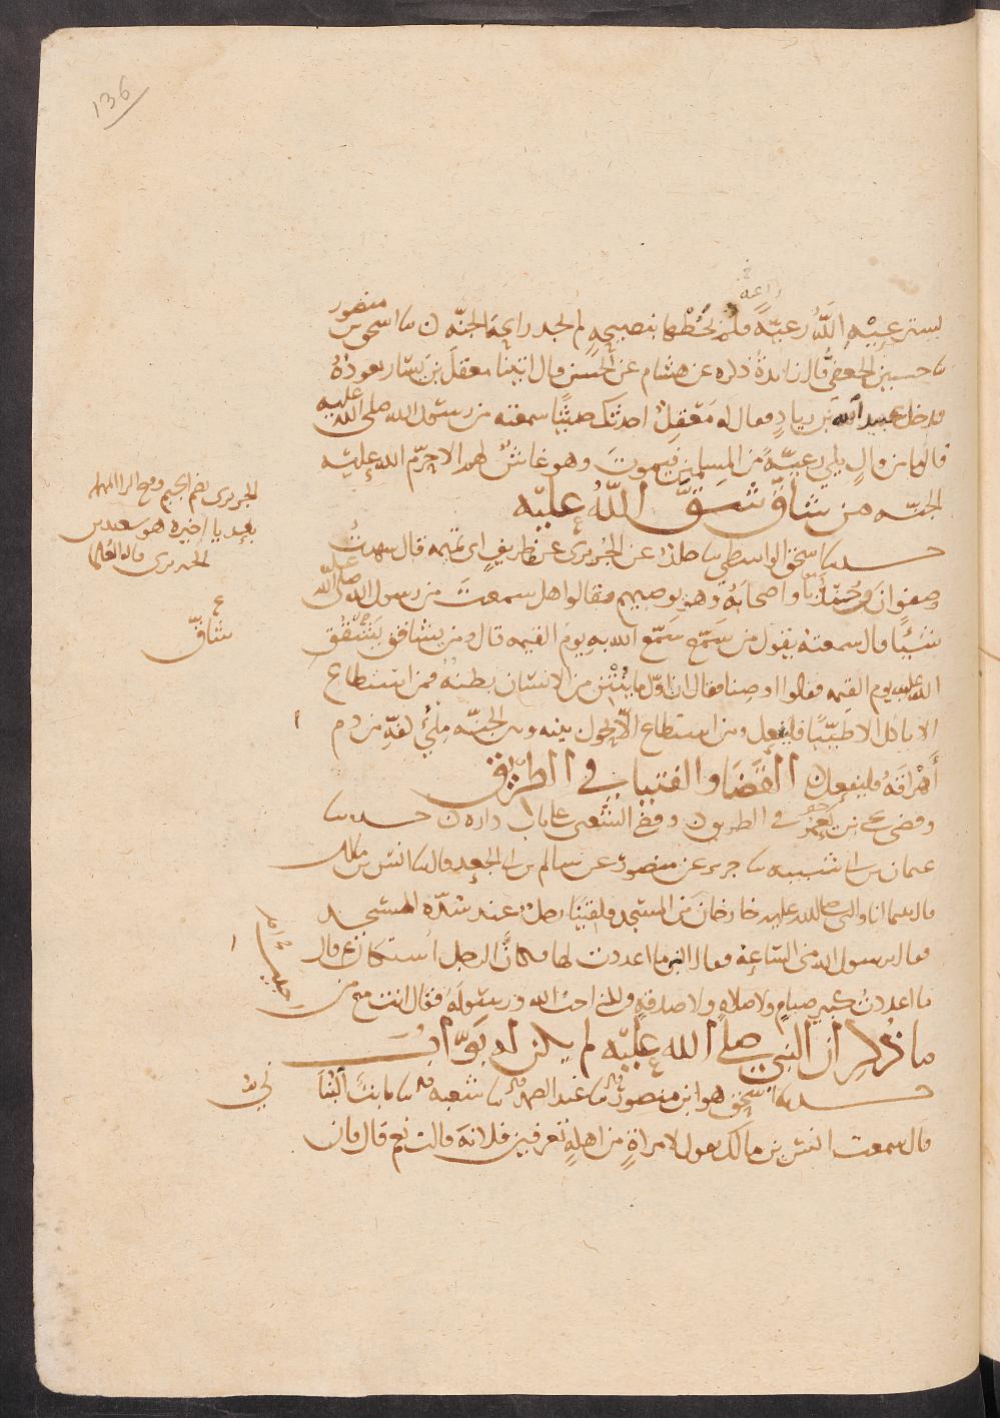 136
يسترعيه الله رعية فلم يحطها بنصيحة لم يجد رائحة الجنة ن ما اسحق بن منصور
ما حسين الجعفي قال زائدة ذكره عن هشام عن الحسن قال اتينا معقل بن يسار نعوده
فدخل عبيد الله بن زياد فقال له معقل احدثك حديثا سمعته من رسول الله صلى الله عليه
قال ما من وال يلي رعية من المسلمين فيموت وهو غاش لهم الا حرم الله عليه
الجنه من شاق شق الله عليه
حدثنا اسحق الواسطي ما خلد عن الجريري عن طريف ابي تميمه قال شهدت
صفوان وجندبا واصحابه وهو يوصيهم فقالوا هل سمعت من رسول الله صلى الله عليه
شيئا قال سمعته يقول من سمع سمع الله به يوم القيمه قال ومن يشاقق يشقق
الله عليه يوم القيمه فقالوا اوصنا فقال ان اول ما ينتن من الانسان بطنه فمن استطاع
الا ياكل الا طيبا فليفعل ومن استطاع الا يحول بينه وبين الجنه ملئ كفه من دم
أهراقه فليفعل ن القضا والفتيا في الطريق
وقضى يحيى بن يعمر في الطريق ن وقضى الشعبي على باب داره ن حدثنا
عثمان بن ابي شيبه ما جرير عن منصور عن سالم بن ابي الجعد قال ما انس بن ملك
قال بينما انا والنبي صلى الله عليه خارجان من المسجد فلقينا رجل عند سدة المسجد
فقال يرسول الله متى الساعة فقال النبي ما اعددت لها فكان الرجل استكان ثم قال
ما اعددت كبير صيام ولا صلاة ولا صدقة ولكني احب الله ورسوله فقال انت مع من
ما ذكر ان النبي صلى الله عليه لم يكن له بواب
حدثنا اسحق هو ابن منصور قال ما عبد الصمد قال ما شعبه قال ما ثابت البنا
قال سمعت انس بن مالك يقول لامراة من اهله تعرفين فلانة قالت نعم قال فان
الجريري بضم الجيم وفتح الرا المهمله
بعدها يا اخيره هو سعيد بن
الجريري قاله العلما
ع
شاق
احببت
ني ث